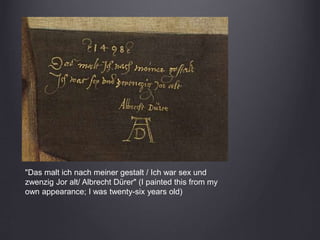 1498
Das malt Ich nach meiner gestalt
Ich war sex und zwenzig Jor alt
Albrecht Dürer
AD
"Das malt ich nach meiner gestalt / Ich war sex und
zwenzig Jor alt/ Albrecht Dürer" (I painted this from my
own appearance; I was twenty-six years old)